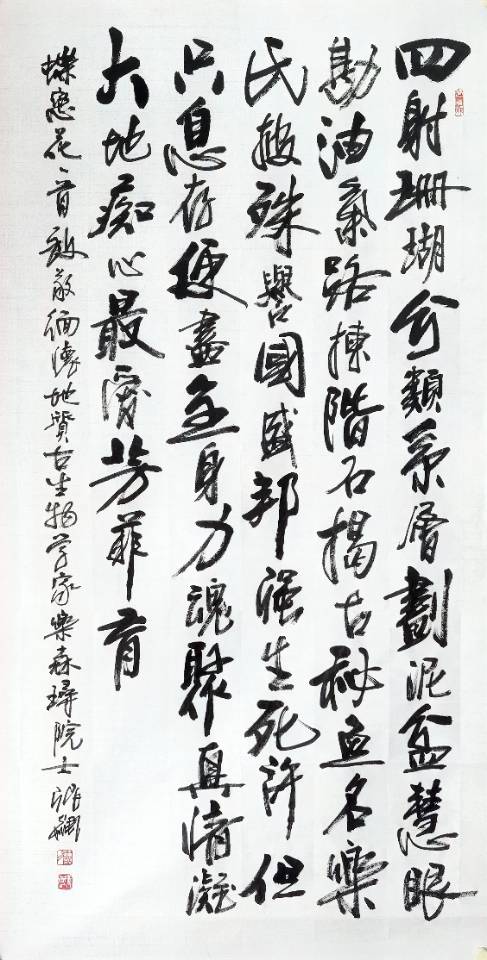 四射珊瑚分類系層劃泥盆慧眼
勘油氣路揀階石揭古秘魚名樂
氏姓殊譽國盛邦強生死許但
只息存便盡全身力魂聚真情凝
大地痴心最愛芳菲育
蝶恋花一首敬缅懷地質古生物学家樂森璕院士